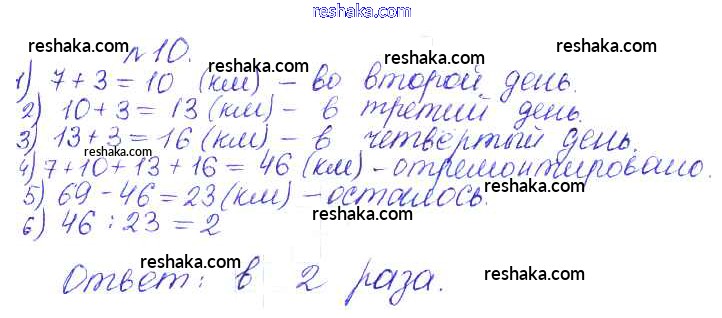 reshaka.com
№10.
reshaka.com reshaka.com
1) 7+3=10 (км) – во второй день.
2) 10+3=13 (км) – в третий день.
3) 13+3=16 (км) – в четвёртый день.
reshaka.com reshaka.com
4) 7+10+13+16=46 (км) – отремонтировано.
5) 69-46=23 (км) – осталось.
reshaka.com reshaka.com reshaka.com
6) 46:23=2
Ответ: в 2 раза.
reshaka.com reshaka.com
reshaka.com